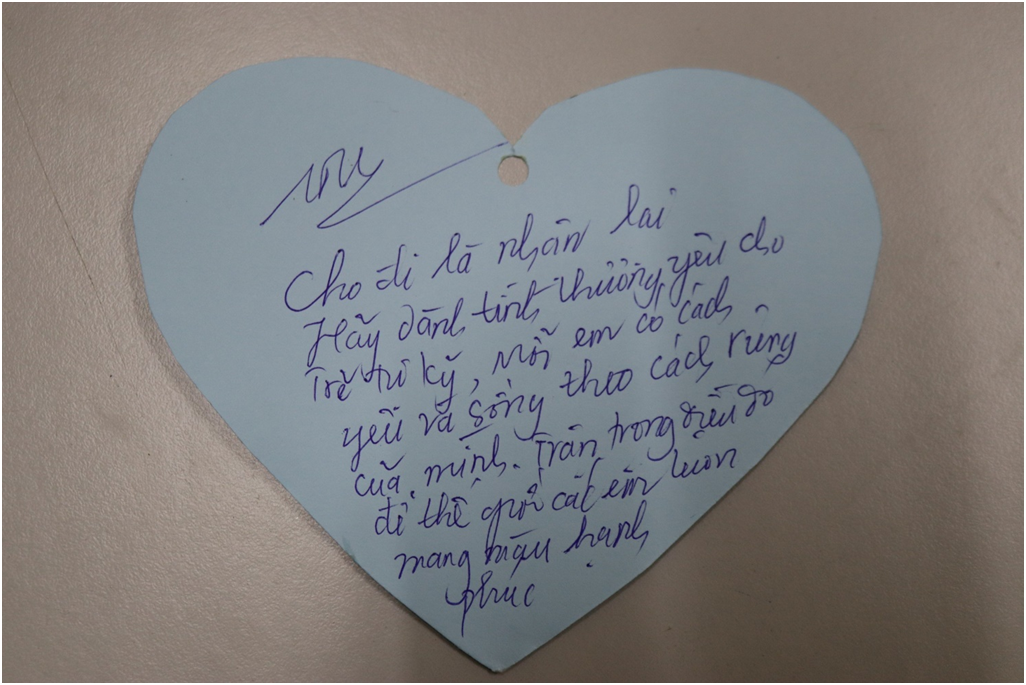 Cho đi là nhận lại
Hãy dành tình thương yêu cho
Trẻ tự kỷ, Mỗi em có cách
yêu và sống theo cách riêng
của mình. Trân trọng điều đó
để thế giới các em luôn
mang màu hạnh
phúc